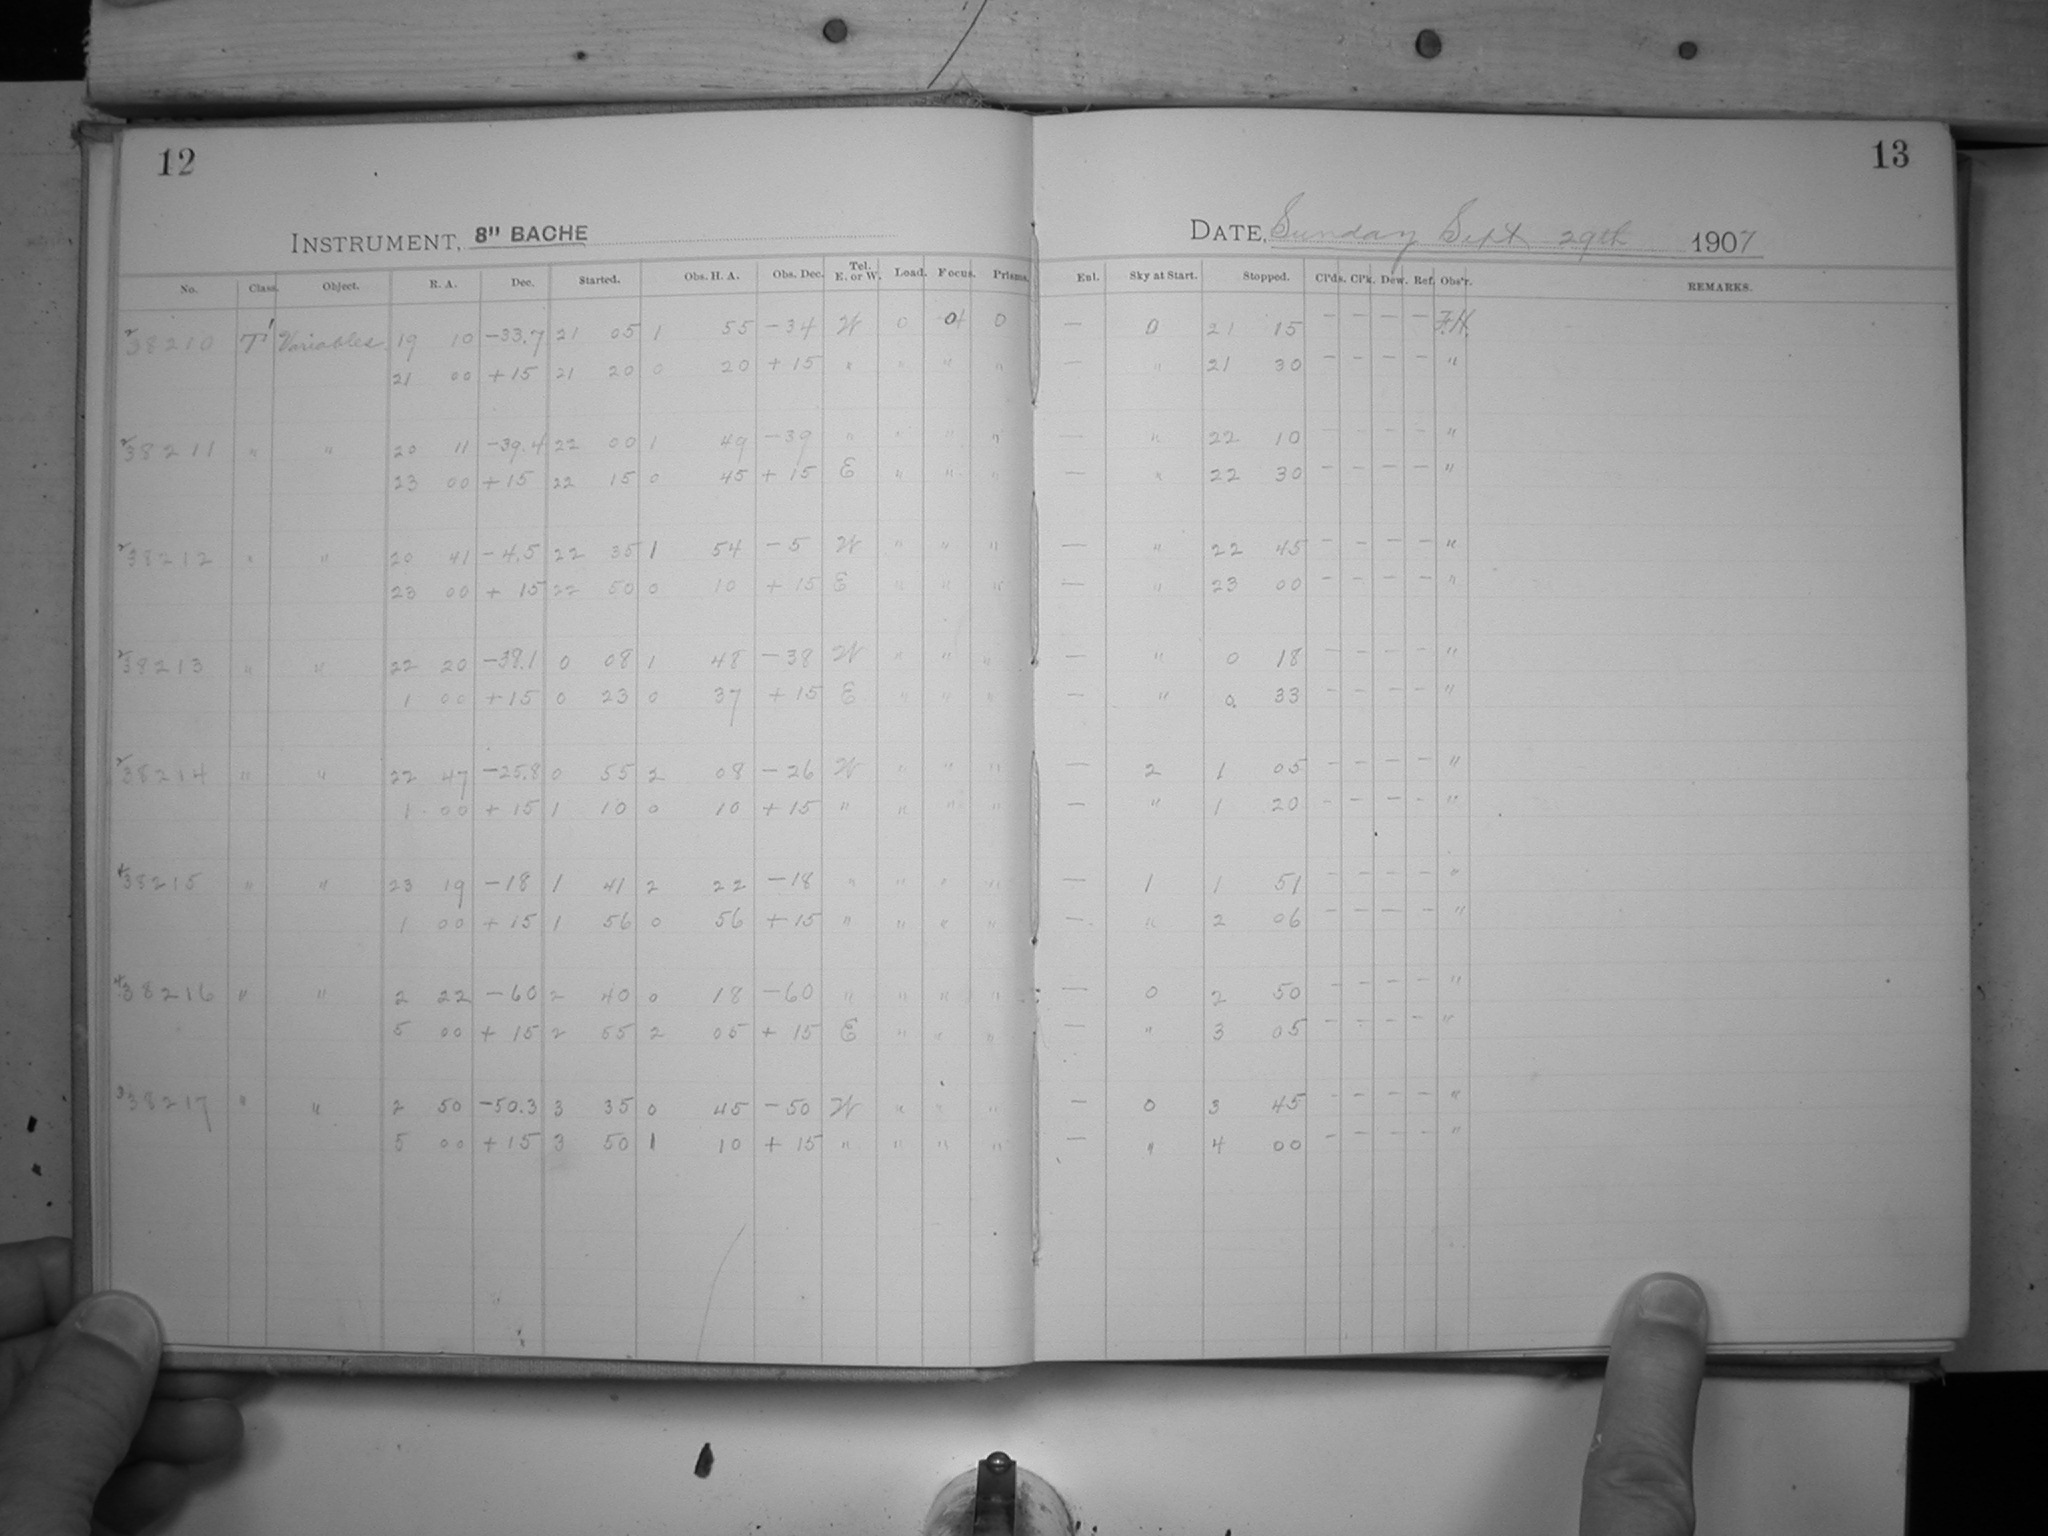 12
13
INSTRUMENT, 8" BACHE
DATE, Sunday Sept 29th 1907
No. Class. Object. R. A. Dec. Started. Obs. H. A. Obs. Dec. Tel. E. or W. Load. Focus. Prisms. Enl. Sky at Start. Stopped. Cl'ds. Cl'k. Dew. Ref. Obs'r. REMARKS.
38210 T' Variables 19 10 -33.7 21 05 1 55 -34 W 0 0 — 0 21 15 – – – – F.H.
21 00 +15 21 20 0 20 +15 " " " " — " 21 30 – – – – "
38211 " " 20 11 -39.4 22 00 1 49 -39 " " " " — " 22 10 – – – – "
23 00 +15 22 15 0 45 +15 E " " " — " 22 30 – – – – "
38212 " " 20 41 -4.5 22 35 1 54 -5 W " " " — " 22 45 – – – – "
23 00 +15 22 50 0 10 +15 E " " " — " 23 00 – – – – "
38213 " " 22 20 -38.1 0 08 1 48 -38 W " " " — " 0 18 – – – – "
1 00 +15 0 23 0 37 +15 E " " " — " 0 33 – – – – "
38214 " " 22 47 -25.8 0 55 2 08 -26 W " " " — 2 1 05 – – – – "
1 00 +15 1 10 0 10 +15 " " " " — " 1 20 – – – – "
38215 " " 23 19 -18 1 41 2 22 -18 " " " " — 1 1 51 – – – – "
1 00 +15 1 56 0 56 +15 " " " " — " 2 06 – – – – "
38216 " " 2 22 -60 2 40 0 18 -60 " " " " — 0 2 50 – – – – "
5 00 +15 2 55 2 05 +15 E " " " — " 3 05 – – – – "
38217 " " 2 50 -50.3 3 35 0 45 -50 W " " " — 0 3 45 – – – – "
5 00 +15 3 50 1 10 +15 " " " " — " 4 00 – – – – "